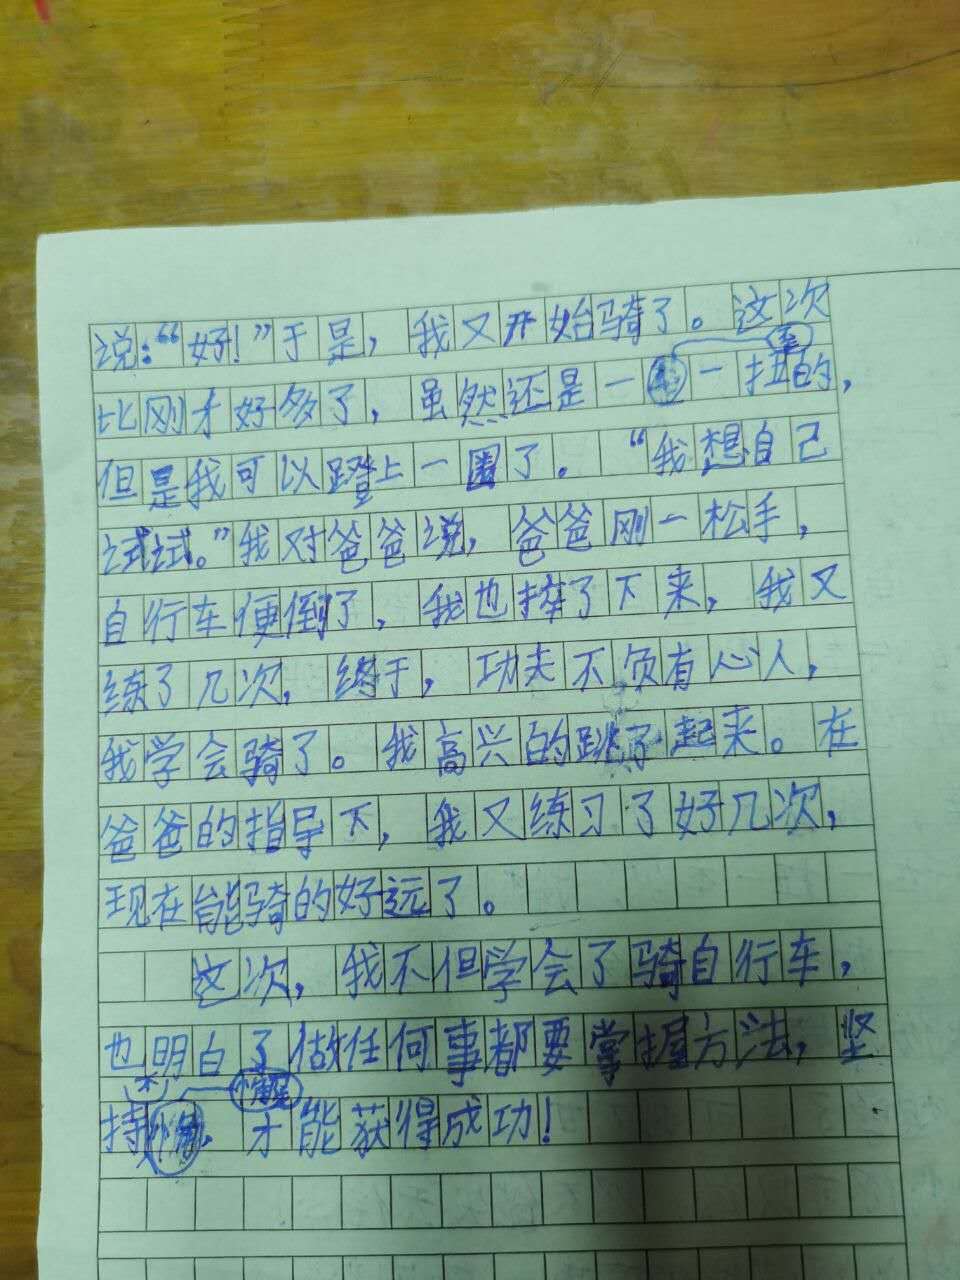 说：“好！”于是，我又开始骑了。这次
比刚才好多了，虽然还是一歪一扭的，
但是我可以蹬上一圈了。“我想自己
试试。”我对爸爸说，爸爸刚一松手，
自行车便倒了，我也摔了下来，我又
练了几次，终于，功夫不负有心人，
我学会骑了。我高兴的跳了起来。在
爸爸的指导下，我又练习了好几次，
现在能骑的好远了。
这次，我不但学会了骑自行车，
也明白了做任何事都要掌握方法，坚
持不懈，才能获得成功！